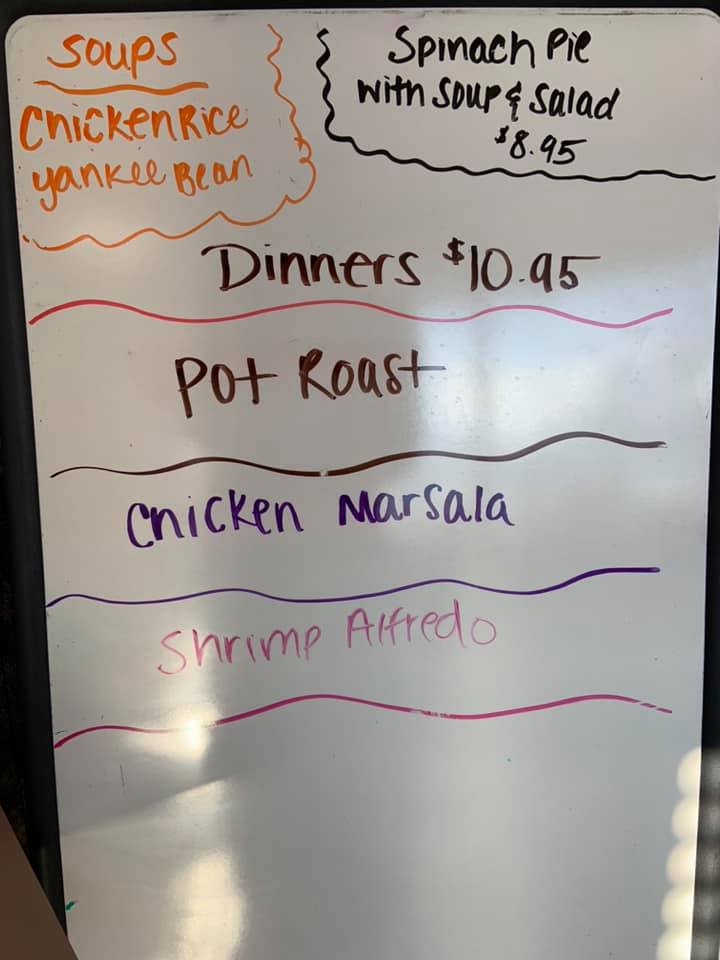 Soups
Chicken Rice
yankee Bean
Spinach Pie
with Soup & Salad
$8.95
Dinners $10.95
Pot Roast
Chicken Marsala
Shrimp Alfredo